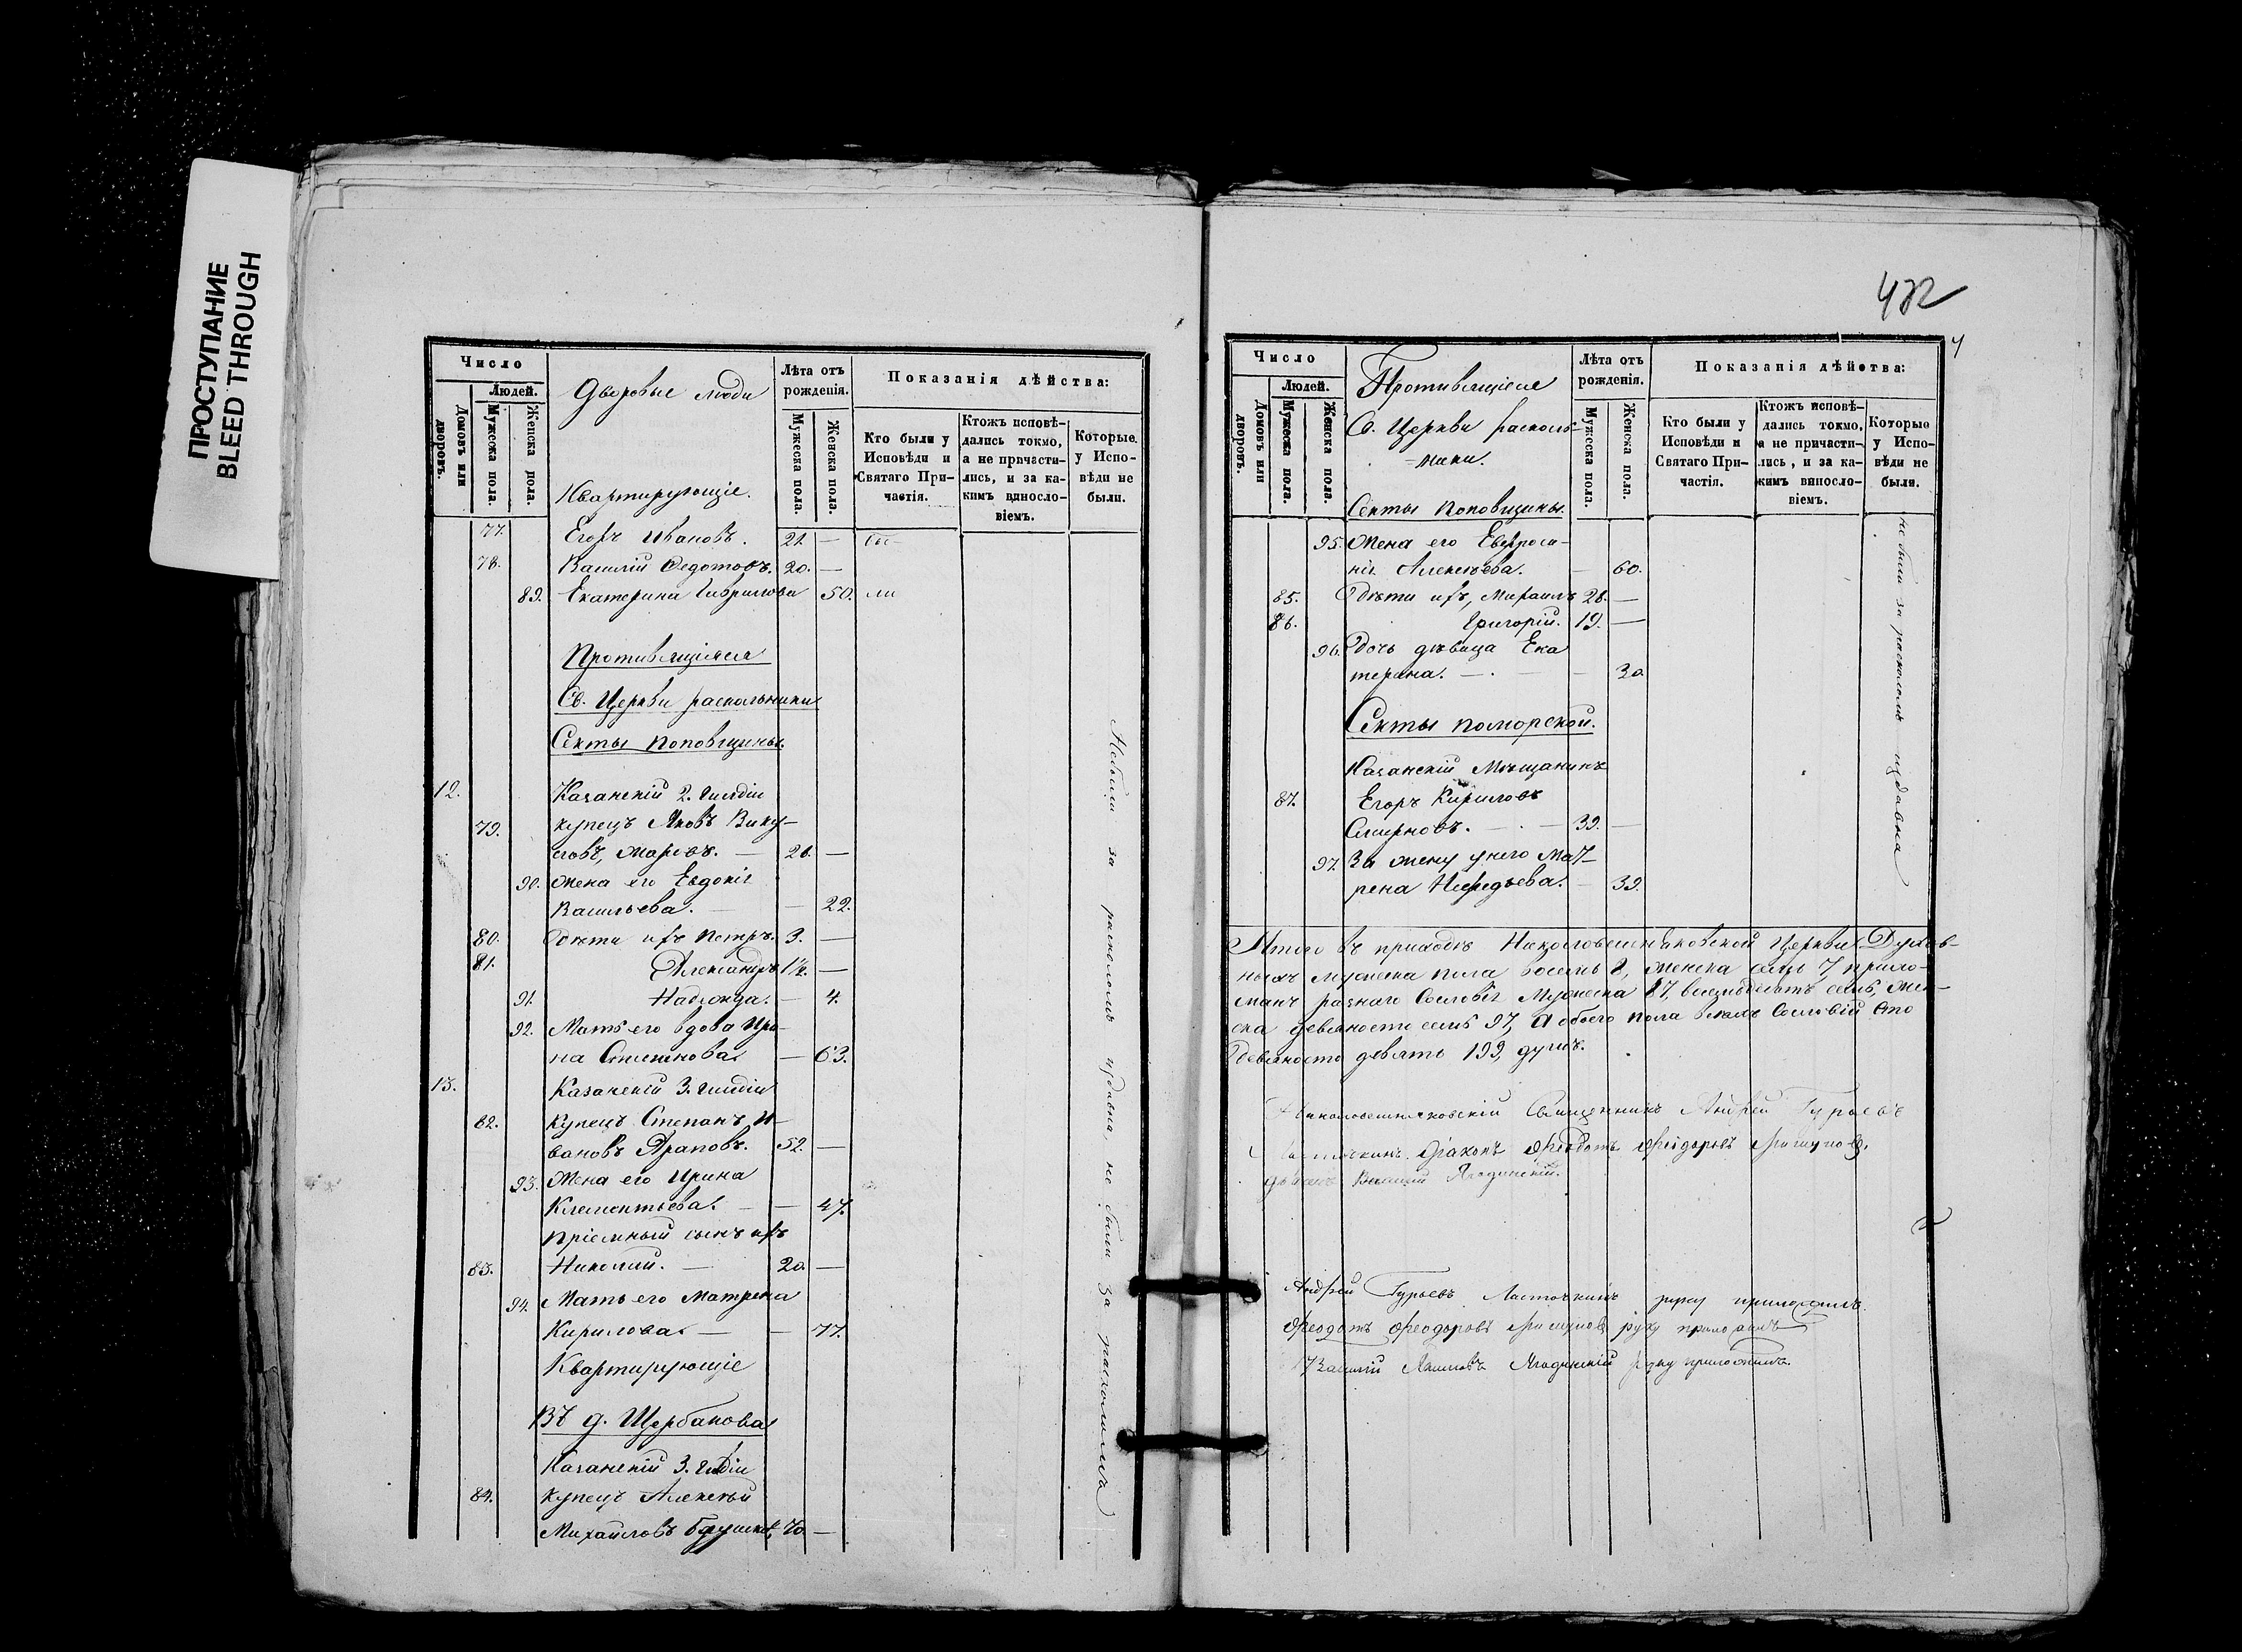 ПРОСТУПАНИЕ
BLEED THROUGH
Число
Людей.
Домовъ или дворовъ.
Мужеска пола.
Женска пола.
Дворовые люди
Квартирующіе.
Лѣта отъ рожденія.
Мужеска пола.
Женска пола.
Показанія дѣйства:
Кто были у Исповѣди и Святаго Причастія.
Ктожъ исповѣдались токмо, а не причастились, и за какимъ винословіемъ.
Которые у Исповѣди не были.
77. Егоръ Ивановъ. 21. — бы-
78. Василій Ѳедотовъ. 20. —
89. Екатерина Гаврилова 50. ли
Противящіяся
Св. Церкви раскольники
Секты поповщины.
12. Казанскій 2. гильдіи
79. купецъ Яковъ Вику-
ловъ, 28. —
90. Жена его Евдокія
Васильева. — — 22.
80. Дѣти ихъ Петръ. 3. —
81. Александръ 1½. —
91. Надежда. — 4.
92. Мать его вдова Ири-
на Степанова — 63.
13. Казанскій 3. гильдіи
82. купецъ Степанъ И-
вановъ Араповъ. 52. —
93. Жена его Ирина
Клементьева. — — 47.
Пріемный сынъ ихъ
83. Николай. — 20. —
94. Мать его Матрена
Кирилова — — 77.
Квартирующіе
Въ д. Щербакова
Казанскій 3. гильдіи
84. купецъ Алексѣй
Михайловъ 70. —
Небыли за расколомъ издавна, не были за расколомъ
472
Число
Людей.
Домовъ или дворовъ.
Мужеска пола.
Женска пола.
Противящіеся
С. Церкви расколь-
=ники.
Секты поповщины.
Лѣта отъ рожденія.
Мужеска пола.
Женска пола.
Показанія дѣйства:
Кто были у Исповѣди и Святаго Причастія.
Ктожъ исповѣдались токмо, а не причастились, и за какимъ винословіемъ.
Которые у Исповѣди не были.
95. Жена его Евфроси-
нія Алексѣева. — 60.
85. Дѣти ихъ, Михаилъ 28. —
86. Григорій. 19. —
96. Дочь дѣвица Ека
терина. — — 30.
Секты поморской.
Казанскій Мѣщанинъ
87. Егоръ Кириловъ
Смирновъ. — 39. —
97. За жену у него Мат-
рена Нефедьева. — 39.
не были за расколомъ издавна
Итого въ приходѣ Николовешняковской Церкви Духов-
ныхъ мужеска пола восемь 8, женска семь 7, прихо-
жанъ разнаго сословія Мужеска 87, восемьдесятъ семь, жен-
ска девяносто семь 97, А обоего пола всѣхъ Сословій Сто
девяносто девять 199, душъ.
Николовешняковскій Священникъ Андрей Гурьевъ
Ласточкинъ. Діаконъ Ѳеодотъ Ѳеодоровъ
Василій Ягодинскій.
Андрей Гурьевъ Ласточкинъ руку приложилъ.
Ѳеодотъ Ѳеодоровъ руку приложилъ
Василій Ягодинскій руку приложилъ.